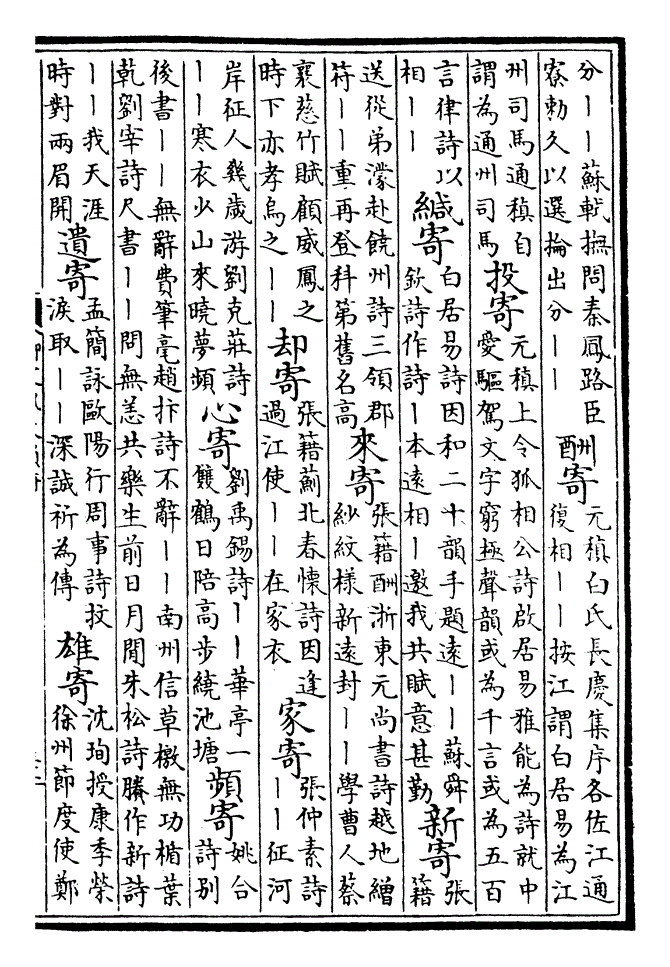 分｜｜蘇軾撫問秦鳳路臣
寮勅久以選掄出分｜｜
酬寄
元稹白氏長慶集序各佐江通
復相｜｜按江謂白居易為江
州司馬通稹自
謂為通州司馬
投寄
元稹上令狐相公詩啟居易雅能為詩就中
愛驅駕文字窮極聲韻或為千言或為五百
言律詩以
相｜｜
緘寄
白居易詩因和二十韻手題遠｜｜蘇舜
欽詩作詩｜本遠相｜邀我共賦意甚勤
新寄
張
籍
送從弟濛赴饒州詩三領郡
符｜｜重再登科第舊名高
來寄
張籍酬浙東元尚書詩越地繒
紗紋樣新遠封｜｜學曹人蔡
襄慈竹賦顧威鳳之
時下亦孝烏之｜｜
却寄
張籍薊北春懷詩因逢
過江使｜｜在家衣
家寄
張仲素詩
｜｜征河
岸征人幾歲游劉克莊詩
｜｜寒衣少山來曉夢頻
心寄
劉禹錫詩｜｜華亭一
雙鶴日陪高步繞池塘
頻寄
姚合
詩别
後書｜｜無辭費筆毫趙抃詩不辭｜｜南州信草檄無功楯葉
乾劉宰詩尺書｜｜問無恙共樂生前日月閒朱松詩賸作新詩
｜｜我天涯
時對兩眉開
遺寄
孟簡詠歐陽行周事詩抆
淚取｜｜深誠祈為傳
雄寄
沈珣授康季榮
徐州節度使鄭